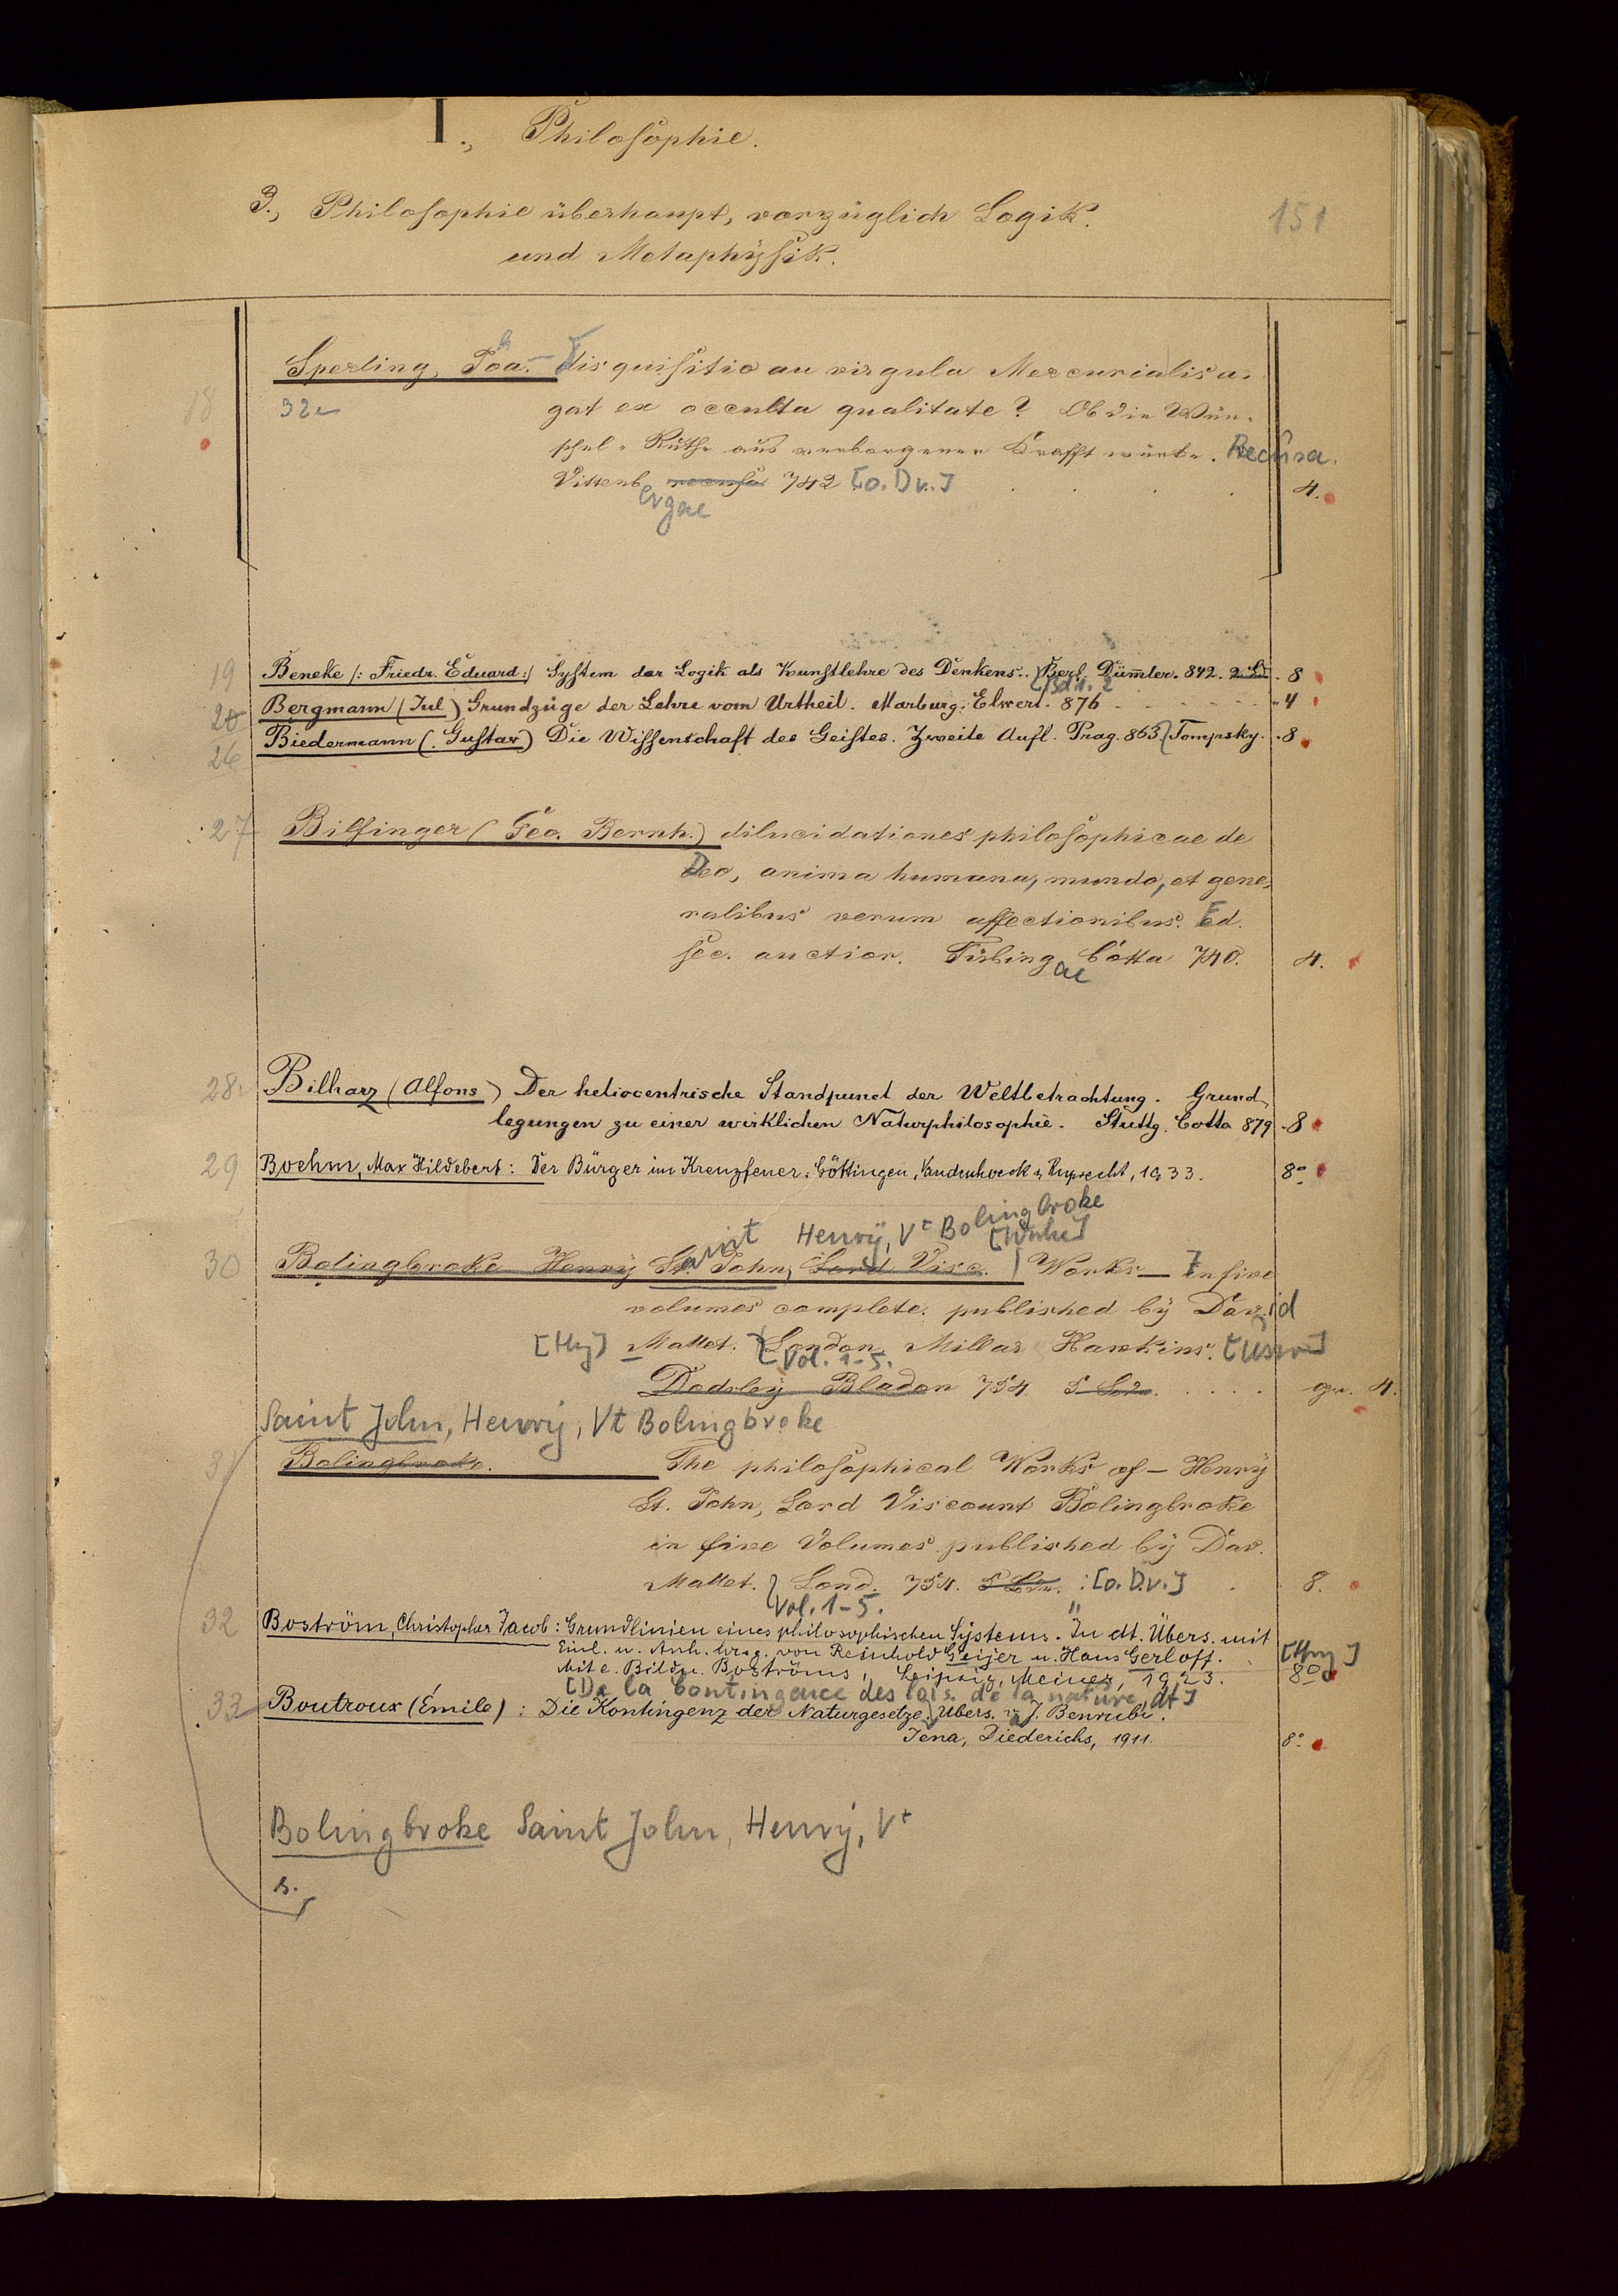 I., Philosophie.
3., Philosophie überhaupt, vorzüglich Logik. 151
und Metaphÿsik.
18 Sperling, Joa. Disquisitio an virgula Mercurialis a-
32 gat ex occulta qualitate? Ob die Wün-
schel-Ruthe aus verborgener Krafft würke. Recusa.
Vittenb 742 [o. Dr.] 4.
ergae
19 Beneke /: Friedr. Eduard :/ System der Logik als Kunstlehre des Denkens. Berl. Dümmler. 842. 2 Bde. 8
Bd 1. 2
20 Bergmann (Jul) Grundzüge der Lehre vom Urtheil. Marburg. Elwert. 876 4
26 Biedermann (Gustav) Die Wissenschaft des Geistes. Zweite Aufl. Prag. 863 Tempsky. 8
27 Bilfinger (Geo. Bernh.) dilucidationes philosophicae de
Deo, anima humana, mundo, et gene-
ralibus rerum affectionibus. Ed.
sec. auctior. Tübing Cotta 740. 4.
ae
28 Bilharz (Alfons) Der heliocentrische Standpunct der Weltbetrachtung. Grund-
legungen zu einer wirklichen Naturphilosophie. Stuttg. Cotta 879 8
29 Boehm, Max Hildebert: Der Bürger im Kreuzfeuer. Göttingen, Vandenhoeck u. Ruprecht, 1933. 8°
aint Henrÿ, Vt Bolingbroke
[Works]
30 Bolingbroke Henrÿ St. John, Lord Visc. Works — In five
volumes complete. published bÿ David
[Hrg] Mallet. London, Millar Hawkins. [usw]
Vol. 1-5.
Dodsleÿ Bladon 754. gr. 4.
Saint John, Henrÿ, Vt Bolingbroke
31 Bolingbroke. The philosophical Works of — Henrÿ
St. John, Lord Viscount Bolingbroke
in five Volumes published bÿ Dav.
Mallet. Lond. 754. [o. Dr.] 8.
Vol. 1-5.
32 Boström, Christopher Jacob: Grundlinien eines philosophischen Systems. In dt. Übers. mit
Einl. u. Anh. hrsg. von Reinhold Geijer u. Hans Gerloff. [Hrg]
Mit e. Bildn. Boströms, Leipzig, Meiner, 1923. 8°
[De la Contingence des lois de la nature, dt]
33 Boutroux (Émile): Die Kontingenz der Naturgesetze. Übers. v. J. Benrubi.
Jena, Diederichs, 1911. 8°
Bolingbroke Saint John, Henrÿ, Vt
s.